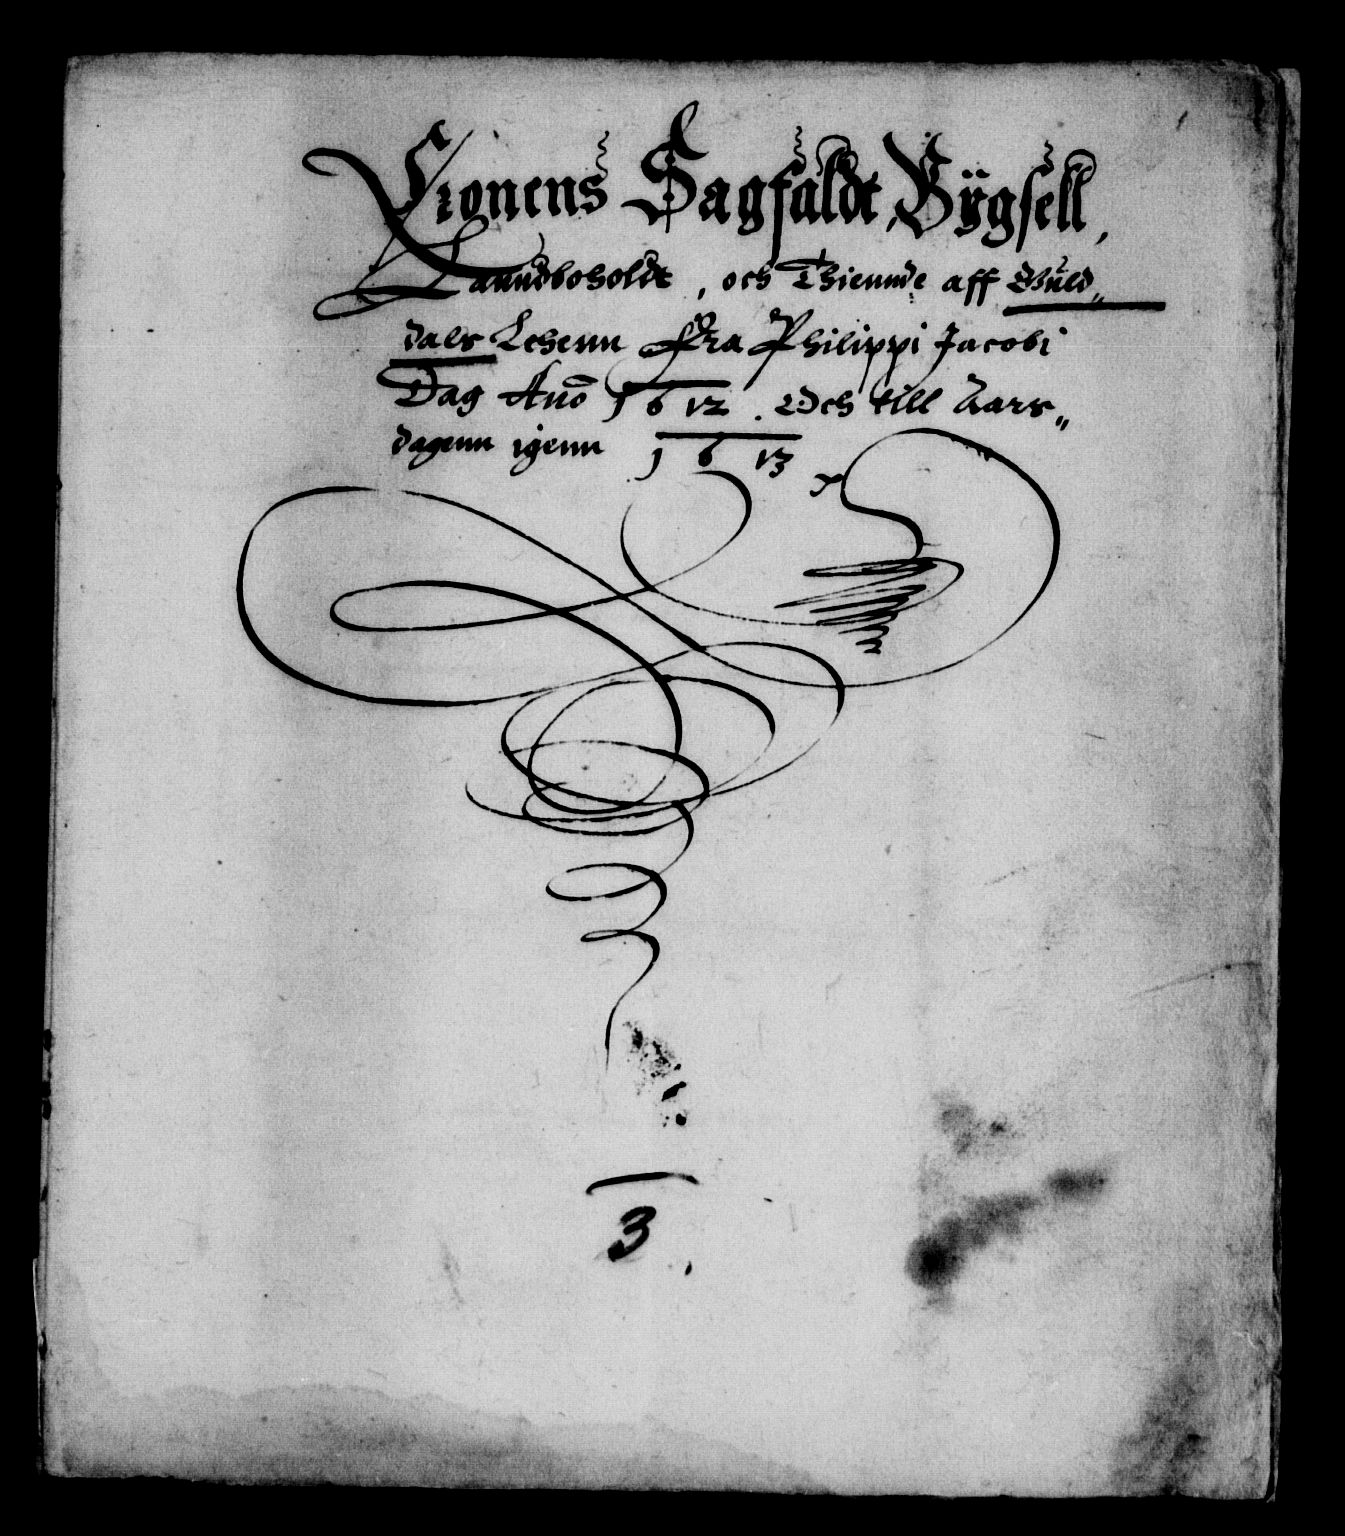 Cronens Sagfaldt, Bÿgsell,
Lanndboholdt, och Thiennde aff Guld„
dals Lehenn Fra Philippi Jacobi
Dag Anno 1612. Och till Aars„
dagenn igenn 1613
3.